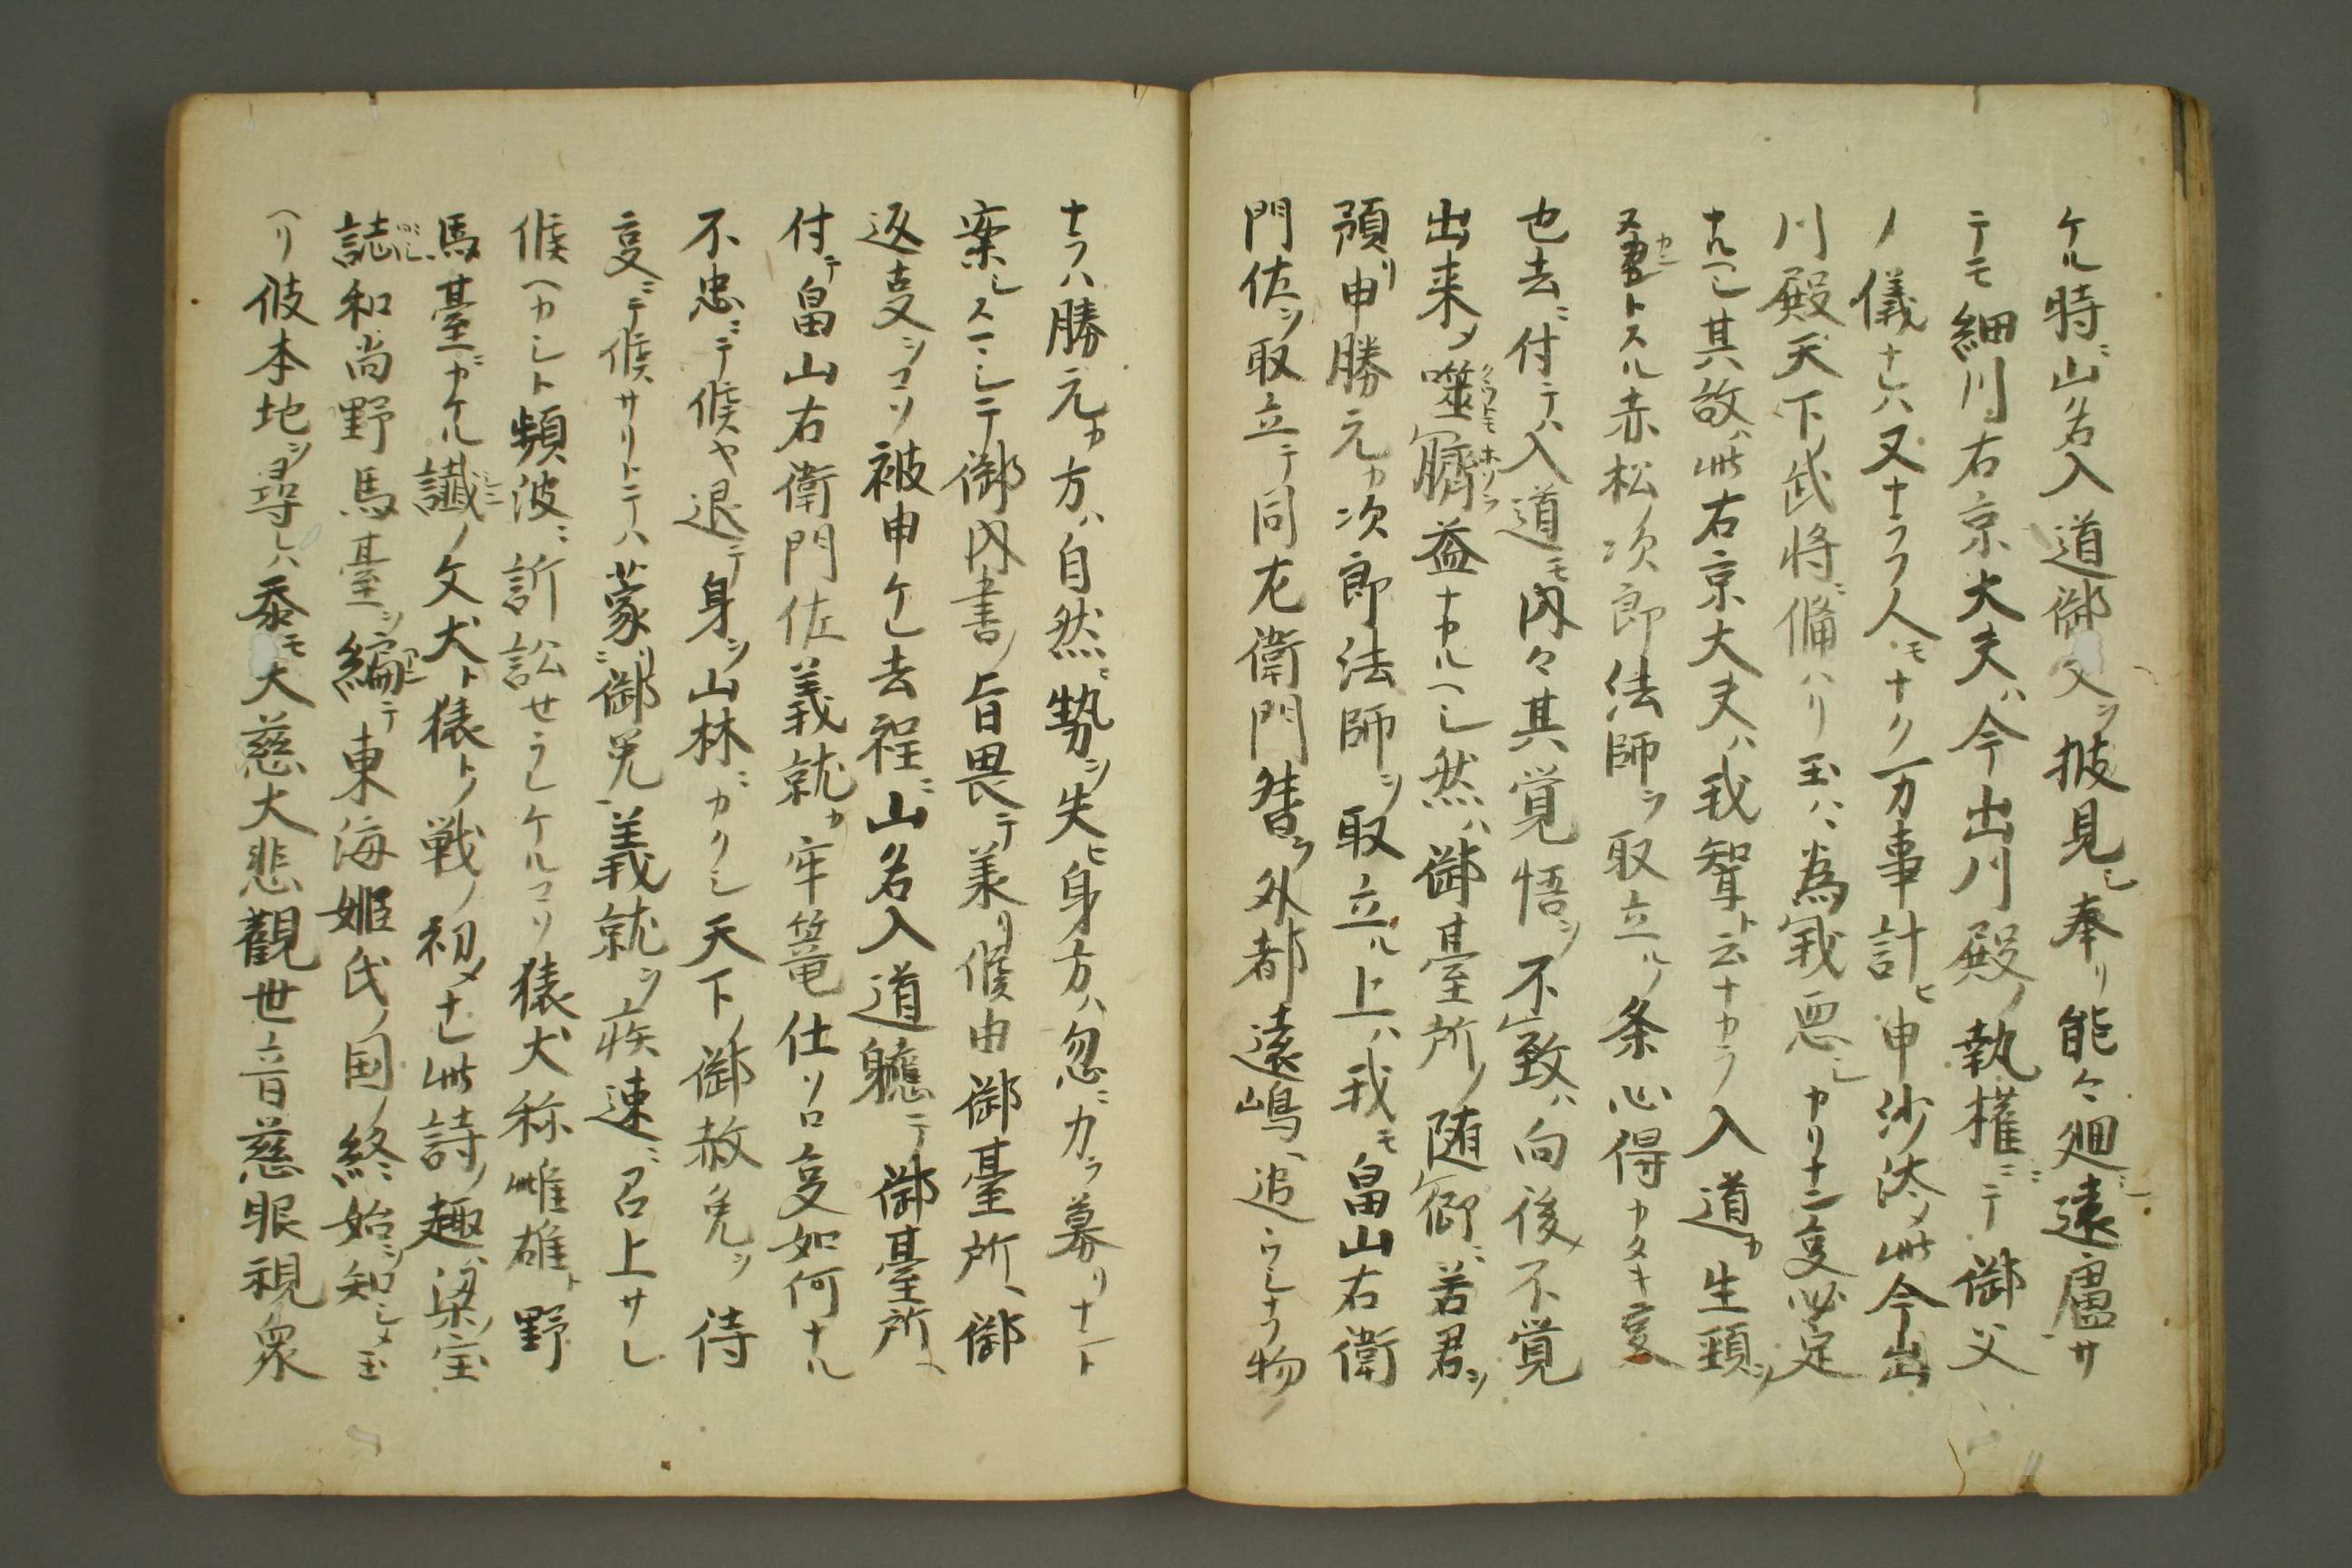 ケル時ニ山名入道御文ヲ披見シ奉リ能々廻遠慮サ
テモ細川右京大夫ハ今出川殿ノ執權ニテ御父
ノ儀ナレハ又ナラフ人モナク万事計ヒ申沙汰メ此今出
川殿天下ノ武将ニ備ハリ玉ハヽ為我悪シカリナン事必定
ナルヘシ其故ハ此右京大夫ハ我聟ト云ナカラ入道カ生頸ヲ
トスル赤松次郎法師ヲ取立ルノ条心得カタキ事
也去ニ付テハ入道モ内々其覚悟ヲ不致ハ向後不覚
出来メ噬臍クウトモホソヲ益ナカルヘシ然ハ御臺所ノ随仰ニ若君ヲ
預リ申勝元カ次郎法師ヲ取立ル上ハ我モ畠山右衛
門佐ヲ取立テ同左衛門督ヲ外都遠嶋ヘ追ウシナフ物ノ
ナラハ勝元カ方ハ自然ニ勢ヲ失ヒ身方ハ忽ニカラ募リナント
案シスマシテ御内書ノ旨畏テ羕リ候由御臺所ヘ御
返事ヲコソ被申ケレ去程ニ山名入道軈テ御臺所ヘ
付テ畠山右衛門佐義就カ牢篭仕ソロ事如何ナル
不忠ニテ候ヤ退テ身ヲ山林ニカクシ天下ノ御赦免ヲ待
事ニテ候サリトテハ蒙リ御免ヲ義就ヲ疾速ニ召上サレ
候ヘカシト頻波ニ訴訟せラレケルコソ猿犬称雌雄ト野
馬臺ニカケル讖ノ文犬ト猿トノ戦ノ初メナレ此詩ノ趣ハ梁ノ宝
誌和尚野馬臺ヲ編テ東海姫氏ノ国ノ終始ヲ知シメ玉
ヘリ彼本地ヲ尋レハ忝モ大慈大悲觀世音慈眼視衆